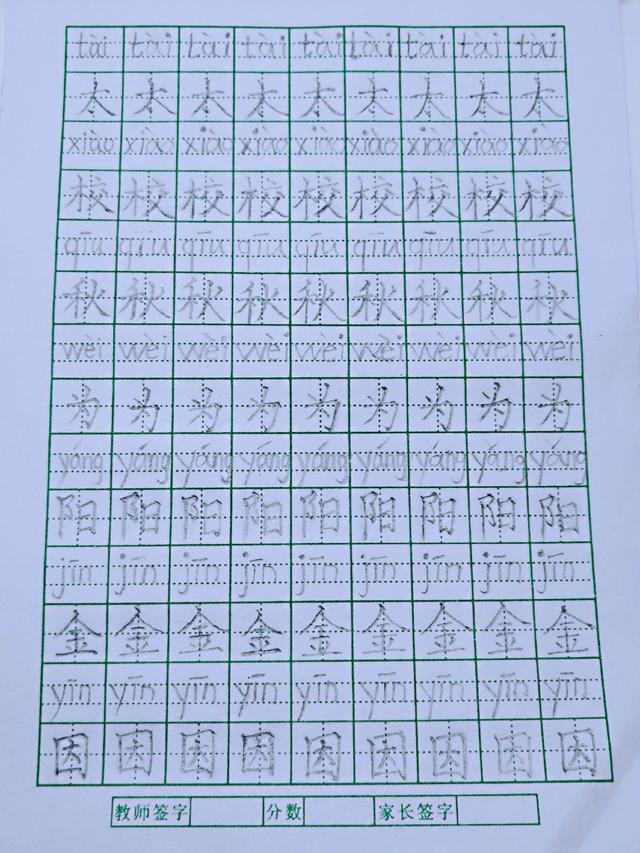 tài tài tài tài tài tài tài tài tài
太 太 太 太 太 太 太 太 太
xiào xiào xiào xiào xiào xiào xiào xiào xiào
校 校 校 校 校 校 校 校 校
qīu qīu qīu qīu qīu qīu qīu qīu qīu
秋 秋 秋 秋 秋 秋 秋 秋 秋
wèi wèi wèi wèi wèi wèi wèi wèi wèi
为 为 为 为 为 为 为 为 为
yáng yáng yáng yáng yáng yáng yáng yáng yáng
阳 阳 阳 阳 阳 阳 阳 阳 阳
jīn jīn jīn jīn jīn jīn jīn jīn jīn
金 金 金 金 金 金 金 金 金
yīn yīn yīn yīn yīn yīn yīn yīn yīn
因 因 因 因 因 因 因 因 因
教师签字 分数 家长签字